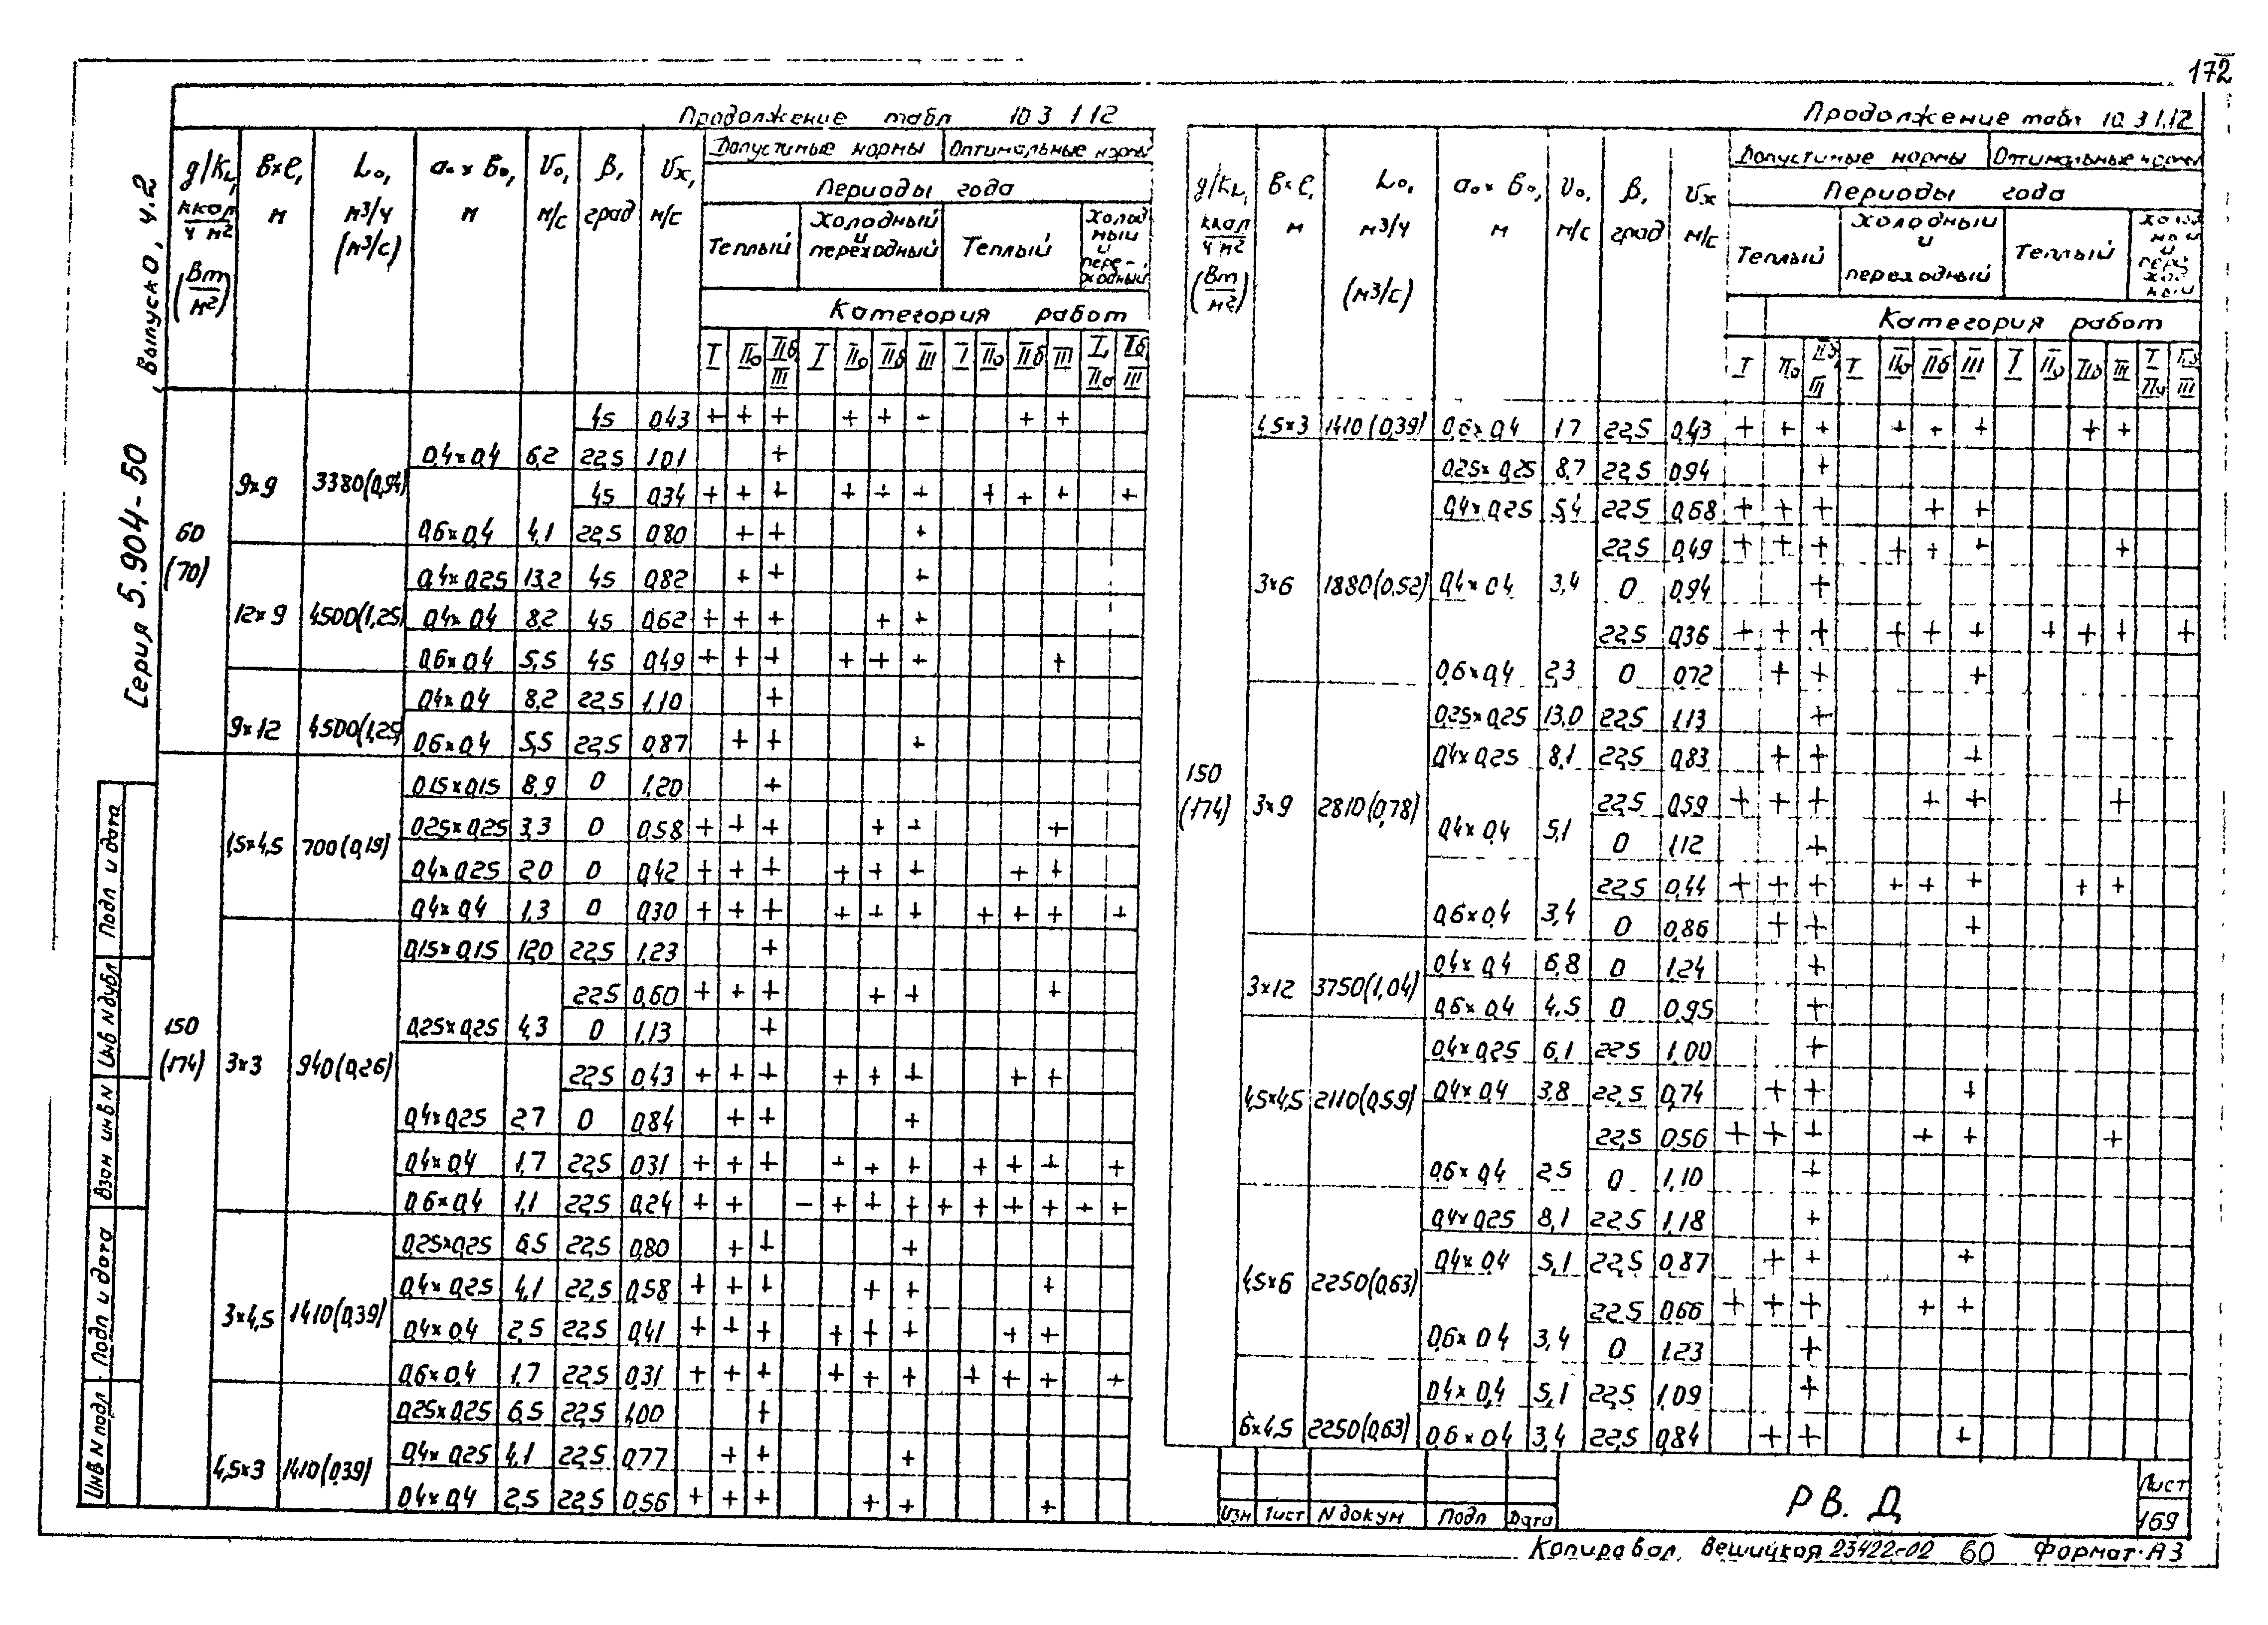 172
Серия 5.904-50, Выпуск 0, ч.2
Продолжение табл 10 3 1 12
g/Kц, ккал/ч м² (Вт/м²) | в×ℓ, м | Lо, м³/ч (м³/с) | aо × bо, м | Vо, м/с | β, град | Vх, м/с | Допустимые нормы | Оптимальные нормы
Периоды года
Теплый | Холодный и переходный | Теплый | Холодный и переходный
Категория работ
I | IIа | IIб III | I | IIа | IIб | III | I | IIа | IIб | III | I, IIа | IIб, III
60 (70)
9×9 3380(0,94)
45 0,43 + + + + + – + +
0,4×0,4 6,2 22,5 1,01 +
45 0,34 + + + + + + + + + +
0,6×0,4 4,1 22,5 0,80 + + +
12×9 4500(1,25)
0,4×0,25 13,2 45 0,82 + + +
0,4×0,4 8,2 45 0,62 + + + + +
0,6×0,4 5,5 45 0,49 + + + + + + +
9×12 4500(1,25)
0,4×0,4 8,2 22,5 1,10 +
0,6×0,4 5,5 22,5 0,87 + + +
150 (174)
1,5×4,5 700(0,19)
0,15×0,15 8,9 0 1,20 +
0,25×0,25 3,3 0 0,58 + + + + + +
0,4×0,25 2,0 0 0,42 + + + + + + + +
0,4×0,4 1,3 0 0,30 + + + + + + + + + +
3×3 940(0,26)
0,15×0,15 12,0 22,5 1,23 +
22,5 0,60 + + + + + +
0,25×0,25 4,3 0 1,13 +
22,5 0,43 + + + + + + + +
0,4×0,25 2,7 0 0,84 + + +
0,4×0,4 1,7 22,5 0,31 + + + + + + + + + +
0,6×0,4 1,1 22,5 0,24 + + – + + + + + + + + +
3×4,5 1410(0,39)
0,25×0,25 6,5 22,5 0,80 + + +
0,4×0,25 4,1 22,5 0,58 + + + + + +
0,4×0,4 2,5 22,5 0,41 + + + + + + + +
0,6×0,4 1,7 22,5 0,31 + + + + + + + + + +
4,5×3 1410(0,39)
0,25×0,25 6,5 22,5 1,00 +
0,4×0,25 4,1 22,5 0,77 + + +
0,4×0,4 2,5 22,5 0,56 + + + + + +
Продолжение табл 10.3 1.12
g/Kц, ккал/ч м² (Вт/м²) | в×ℓ, м | Lо, м³/ч (м³/с) | aо × bо, м | Vо, м/с | β, град | Vх м/с | Допустимые нормы | Оптимальные нормы
Периоды года
Теплый | Холодный и переходный | Теплый | Холодный и переходный
Категория работ
I | IIа | IIб, III | I | IIа | IIб | III | I | IIа | IIб | III | I IIа | IIб III
150 (174)
4,5×3 1410(0,39) 0,6×0,4 1,7 22,5 0,43 + + + + + + + +
3×6 1880(0,52)
0,25×0,25 8,7 22,5 0,94 +
0,4×0,25 5,4 22,5 0,68 + + + + +
22,5 0,49 + + + + + + +
0,4×0,4 3,4 0 0,94 +
22,5 0,36 + + + + + + + + + +
0,6×0,4 2,3 0 0,72 + + +
3×9 2810(0,78)
0,25×0,25 13,0 22,5 1,13 +
0,4×0,25 8,1 22,5 0,83 + + +
22,5 0,59 + + + + + +
0,4×0,4 5,1 0 1,12 +
22,5 0,44 + + + + + + + +
0,6×0,4 3,4 0 0,86 + + +
3×12 3750(1,04)
0,4×0,4 6,8 0 1,24 +
0,6×0,4 4,5 0 0,95 +
4,5×4,5 2110(0,59)
0,4×0,25 6,1 22,5 1,00 +
0,4×0,4 3,8 22,5 0,74 + + +
22,5 0,56 + + + + + +
0,6×0,4 2,5 0 1,10 +
4,5×6 2250(0,63)
0,4×0,25 8,1 22,5 1,18 +
0,4×0,4 5,1 22,5 0,87 + + +
22,5 0,66 + + + + +
0,6×0,4 3,4 0 1,23 +
6×4,5 2250(0,63)
0,4×0,4 5,1 22,5 1,09 +
0,6×0,4 3,4 22,5 0,84 + + +
Изм Лист N докум Подп Дата
РВ. Д
Лист
169
Копировал. Вешицкая 23422-02 60 Формат А3
Инв N подл Подп и дата Взам инв N Инв N дубл Подп и дата